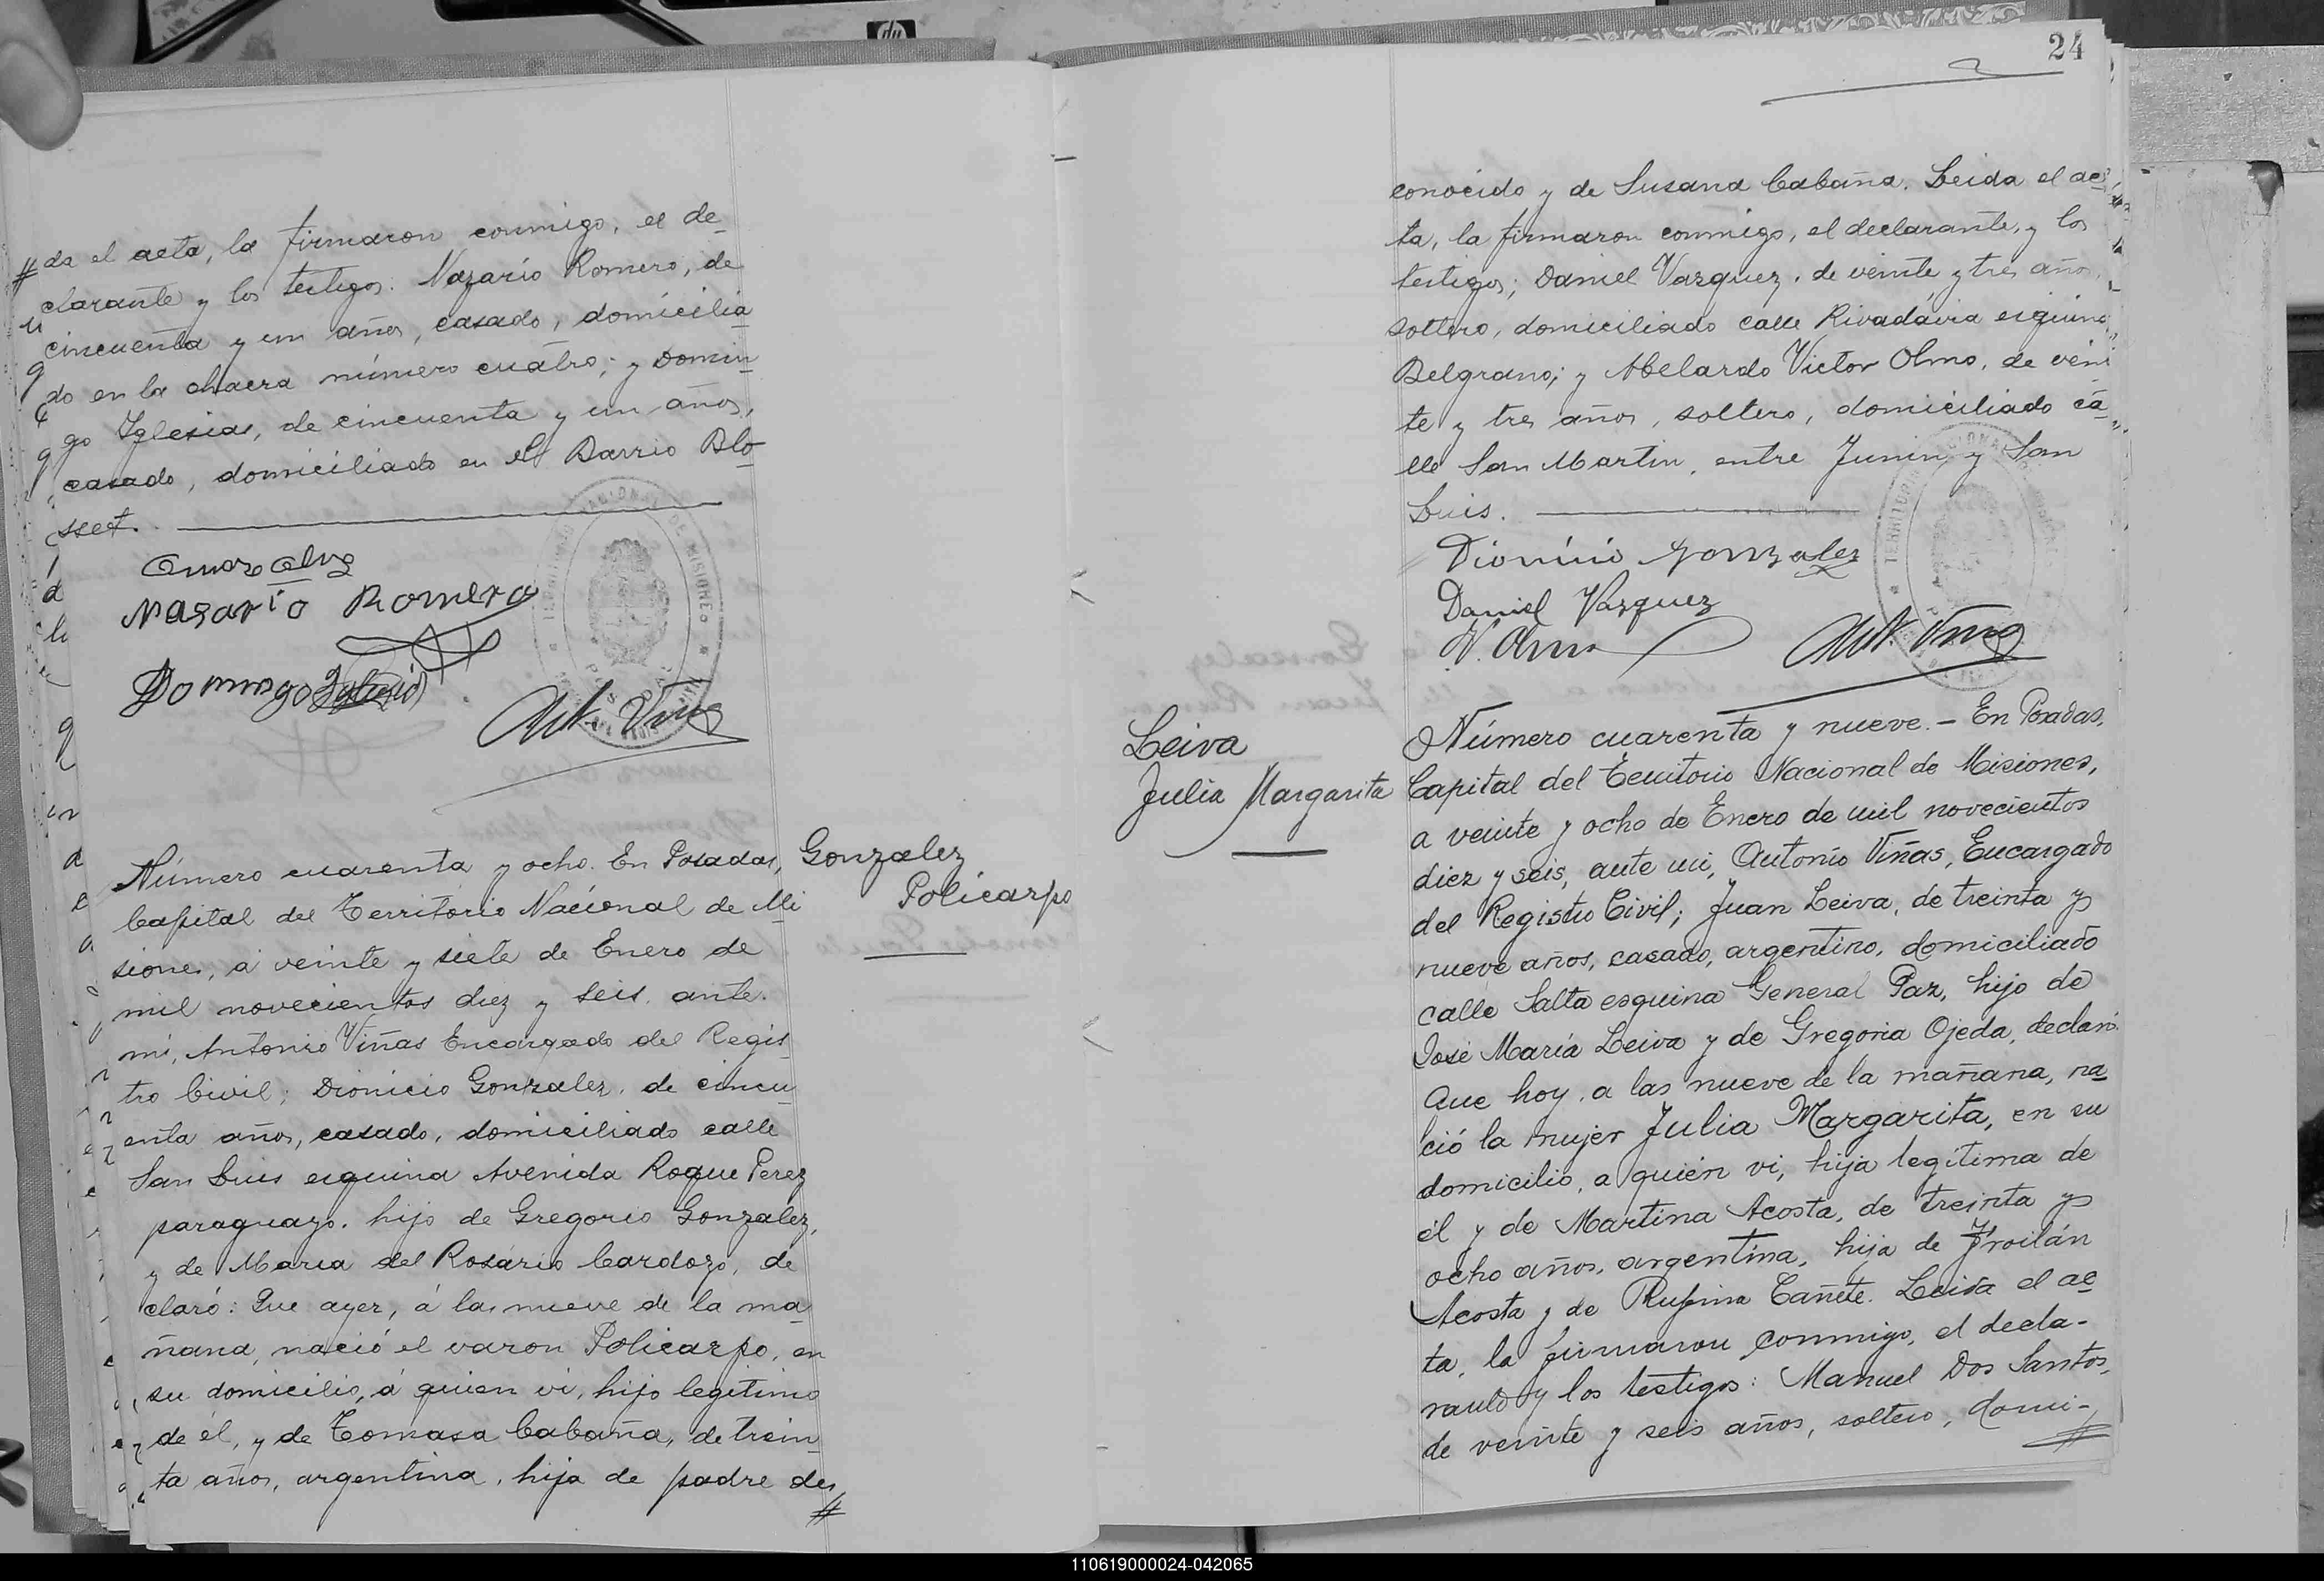 da el acta, la firmaron conmigo, el de-
clarante y los testigos: Nazario Romero, de
cincuenta y un años, casado, domicilia
do en la chacra número cuatro; y Domin-
go Iglesias, de cincuenta y un años,
casado, domiciliado en el Barrio Blo-
sset.
Nasario Romero
Domingo Iglesias
Ant. Viñas
Número cuarenta y ocho. En Posadas,
Capital del Territorio Nacional de Mi
siones, a veinte y siete de Enero de
mil novecientos diez y seis, ante
mi, Antonio Viñas Encargado del Regis-
tro Civil; Dionicio Gonzalez, de cincu-
enta años, casado, domiciliado calle
San Luis esquina Avenida Roque Perez
paraguayo, hijo de Gregorio Gonzalez,
y de Maria del Rosario Cardozo, de
claró: Que ayer, á las nueve de la ma
ñana, nació el varon Policarpo, en
su domicilio, á quien vi, hijo legitimo
de él, y de Tomasa Cabaña, de trein-
ta años, argentina, hija de padre des
Gonzalez
Policarpo
24
conocido y de Susana Cabaña. Leida el ac-
ta, la firmaron conmigo, el declarante, y los
testigos; Daniel Vazquez, de veinte y tres años,
soltero, domiciliado calle Rivadavia esquina
Belgrano; y Abelardo Victor Olmo, de vein
te y tres años, soltero, domiciliado ca-
lle San Martin, entre Junin y San
Luis.
Dionicio Gonzalez
Daniel Vazquez
V. Olmo
Ant. Viñas
Leiva
Julia Margarita
Número cuarenta y nueve.- En Posadas,
Capital del Territorio Nacional de Misiones,
a veinte y ocho de Enero de mil novecientos
diez y seis, ante mi, Antonio Viñas, Encargado
del Registro Civil; Juan Leiva, de treinta y
nueve años, casado, argentino, domiciliado
calle Salta esquina General Paz, hijo de
José María Leiva y de Gregoria Ojeda, declaró:
Que hoy, a las nueve de la mañana, na-
ció la mujer Julia Margarita, en su
domicilio, a quién vi, hija legítima de
él y de Martina Acosta, de treinta y
ocho años, argentina, hija de Froilán
Acosta y de Rufina Cañete. Leida el ac-
ta, la firmaron conmigo, el decla-
rante y los testigos: Manuel Dos Santos,
de veinte y seis años, soltero, domi-
110619000024-042065